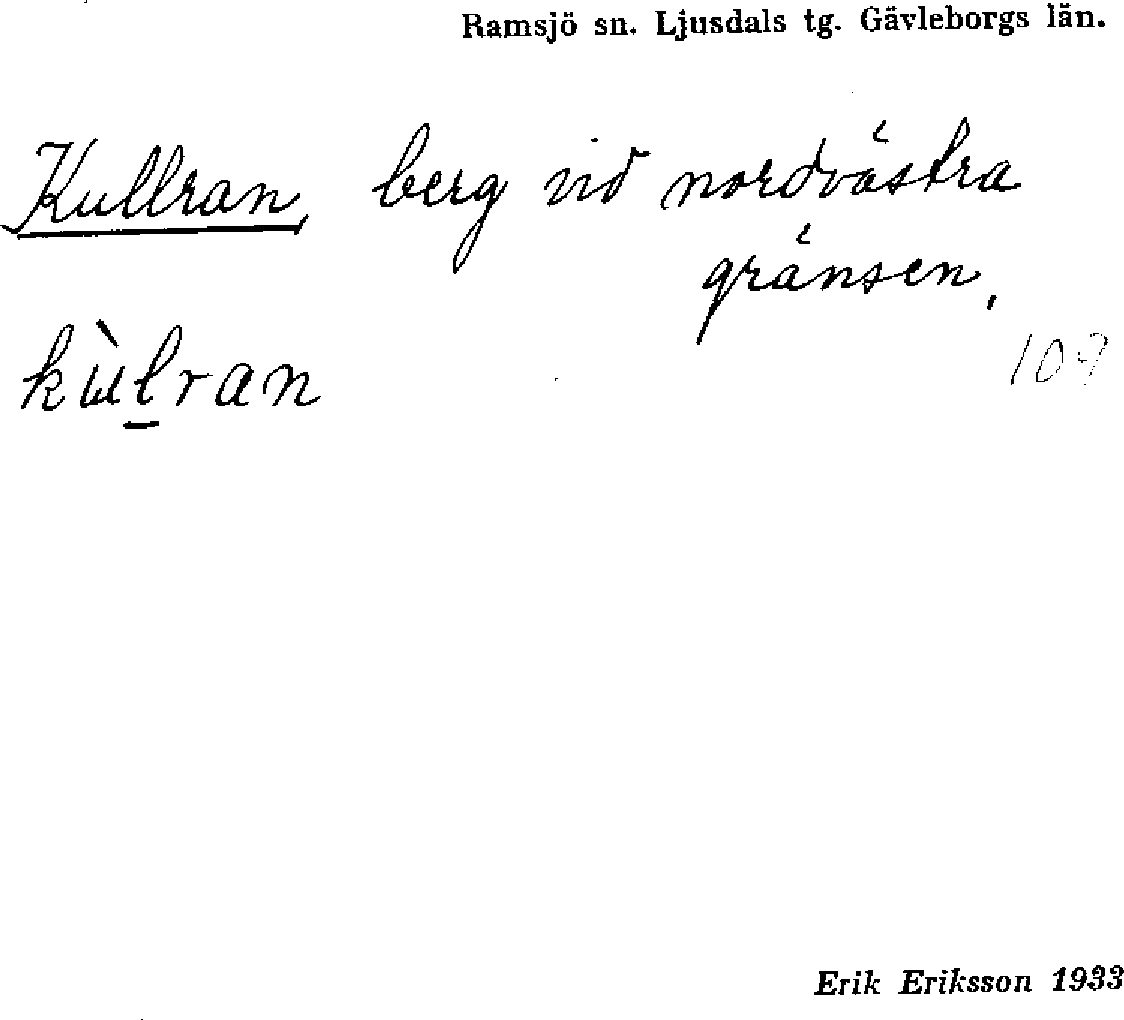 Ramsjö sn. Ljusdals tg. Gävleborgs län.
Kullran, berg vid nordvästra
gränsen,
109
kùl̲ran
Erik Eriksson 1933